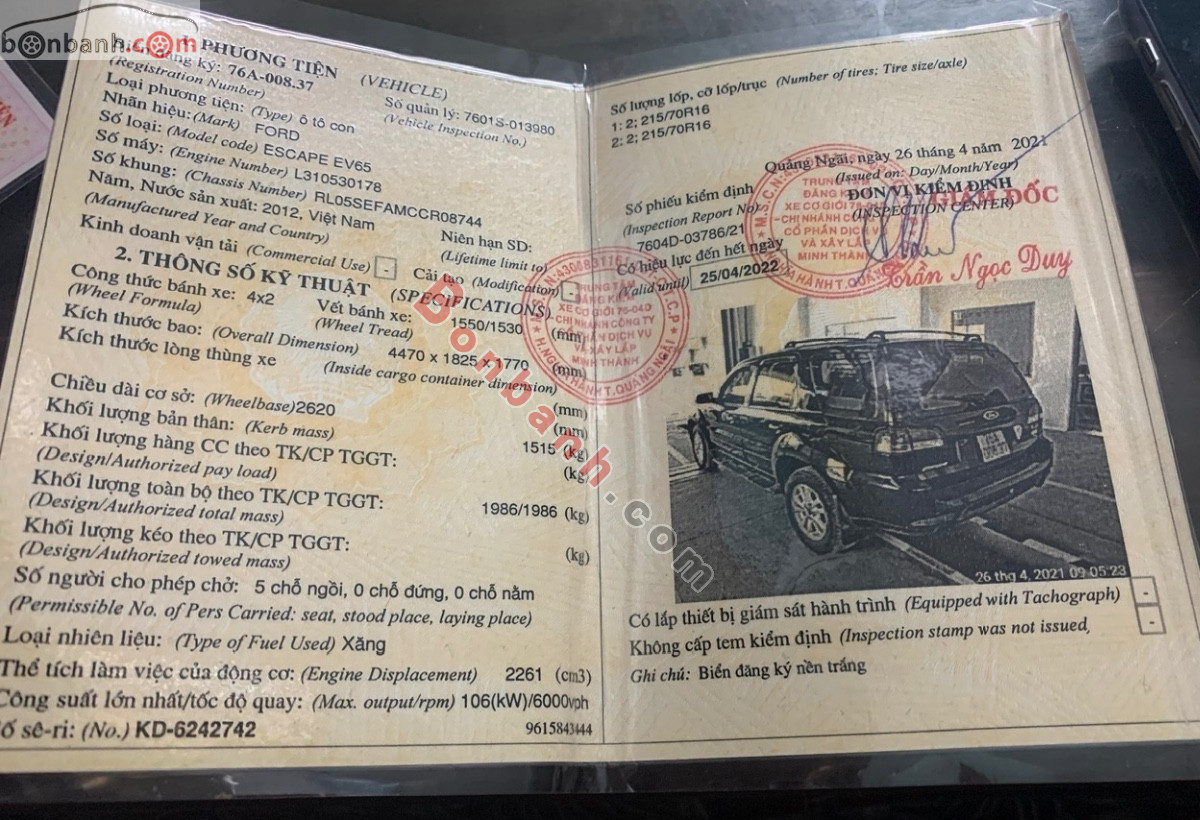 bonbanh.com
PHƯƠNG TIỆN (VEHICLE)
đăng ký: 76A-008.37
(Registration Number)
Số quản lý: 7601S-013980
(Vehicle Inspection No.)
Loại phương tiện: (Type) ô tô con
Nhãn hiệu: (Mark) FORD
Số loại: (Model code) ESCAPE EV65
Số máy: (Engine Number) L310530178
Số khung: (Chassis Number) RL05SEFAMCCR08744
Năm, Nước sản xuất: 2012, Việt Nam
(Manufactured Year and Country)
Niên hạn SD:
(Lifetime limit to)
Kinh doanh vận tải (Commercial Use) -
Cải tạo (Modification) -
2. THÔNG SỐ KỸ THUẬT (SPECIFICATIONS)
Công thức bánh xe: 4x2
(Wheel Formula)
Vết bánh xe: 1550/1530 (mm)
(Wheel Tread)
Kích thước bao: (Overall Dimension) 4470 x 1825 x 1770 (mm)
Kích thước lòng thùng xe (Inside cargo container dimension)
(mm)
Chiều dài cơ sở: (Wheelbase) 2620 (mm)
Khối lượng bản thân: (Kerb mass) 1515 (kg)
Khối lượng hàng CC theo TK/CP TGGT: (kg)
(Design/Authorized pay load)
Khối lượng toàn bộ theo TK/CP TGGT: 1986/1986 (kg)
(Design/Authorized total mass)
Khối lượng kéo theo TK/CP TGGT: (kg)
(Design/Authorized towed mass)
Số người cho phép chở: 5 chỗ ngồi, 0 chỗ đứng, 0 chỗ nằm
(Permissible No. of Pers Carried: seat, stood place, laying place)
Loại nhiên liệu: (Type of Fuel Used) Xăng
Thể tích làm việc của động cơ: (Engine Displacement) 2261 (cm3)
Công suất lớn nhất/tốc độ quay: (Max. output/rpm) 106(kW)/6000vph
Số sê-ri: (No.) KD-6242742
9615843444
Số lượng lốp, cỡ lốp/trục (Number of tires; Tire size/axle)
1: 2; 215/70R16
2: 2; 215/70R16
Quảng Ngãi, ngày 26 tháng 4 năm 2021
(Issued on: Day/Month/Year)
Số phiếu kiểm định
(Inspection Report No)
7604D-03786/21
ĐƠN VỊ KIỂM ĐỊNH
(INSPECTION CENTER)
GIÁM ĐỐC
Có hiệu lực đến hết ngày
(Valid until) 25/04/2022
TRUNG TÂM
ĐĂNG KIỂM
XE CƠ GIỚI 76-04D
CHI NHÁNH CÔNG TY
CỔ PHẦN DỊCH VỤ
VÀ XÂY LẮP
MINH THÀNH
Trần Ngọc Duy
Bonbanh.com
76A
008.37
26 thg 4, 2021 09:05:23
Có lắp thiết bị giám sát hành trình (Equipped with Tachograph) -
Không cấp tem kiểm định (Inspection stamp was not issued, -
Ghi chú: Biển đăng ký nền trắng